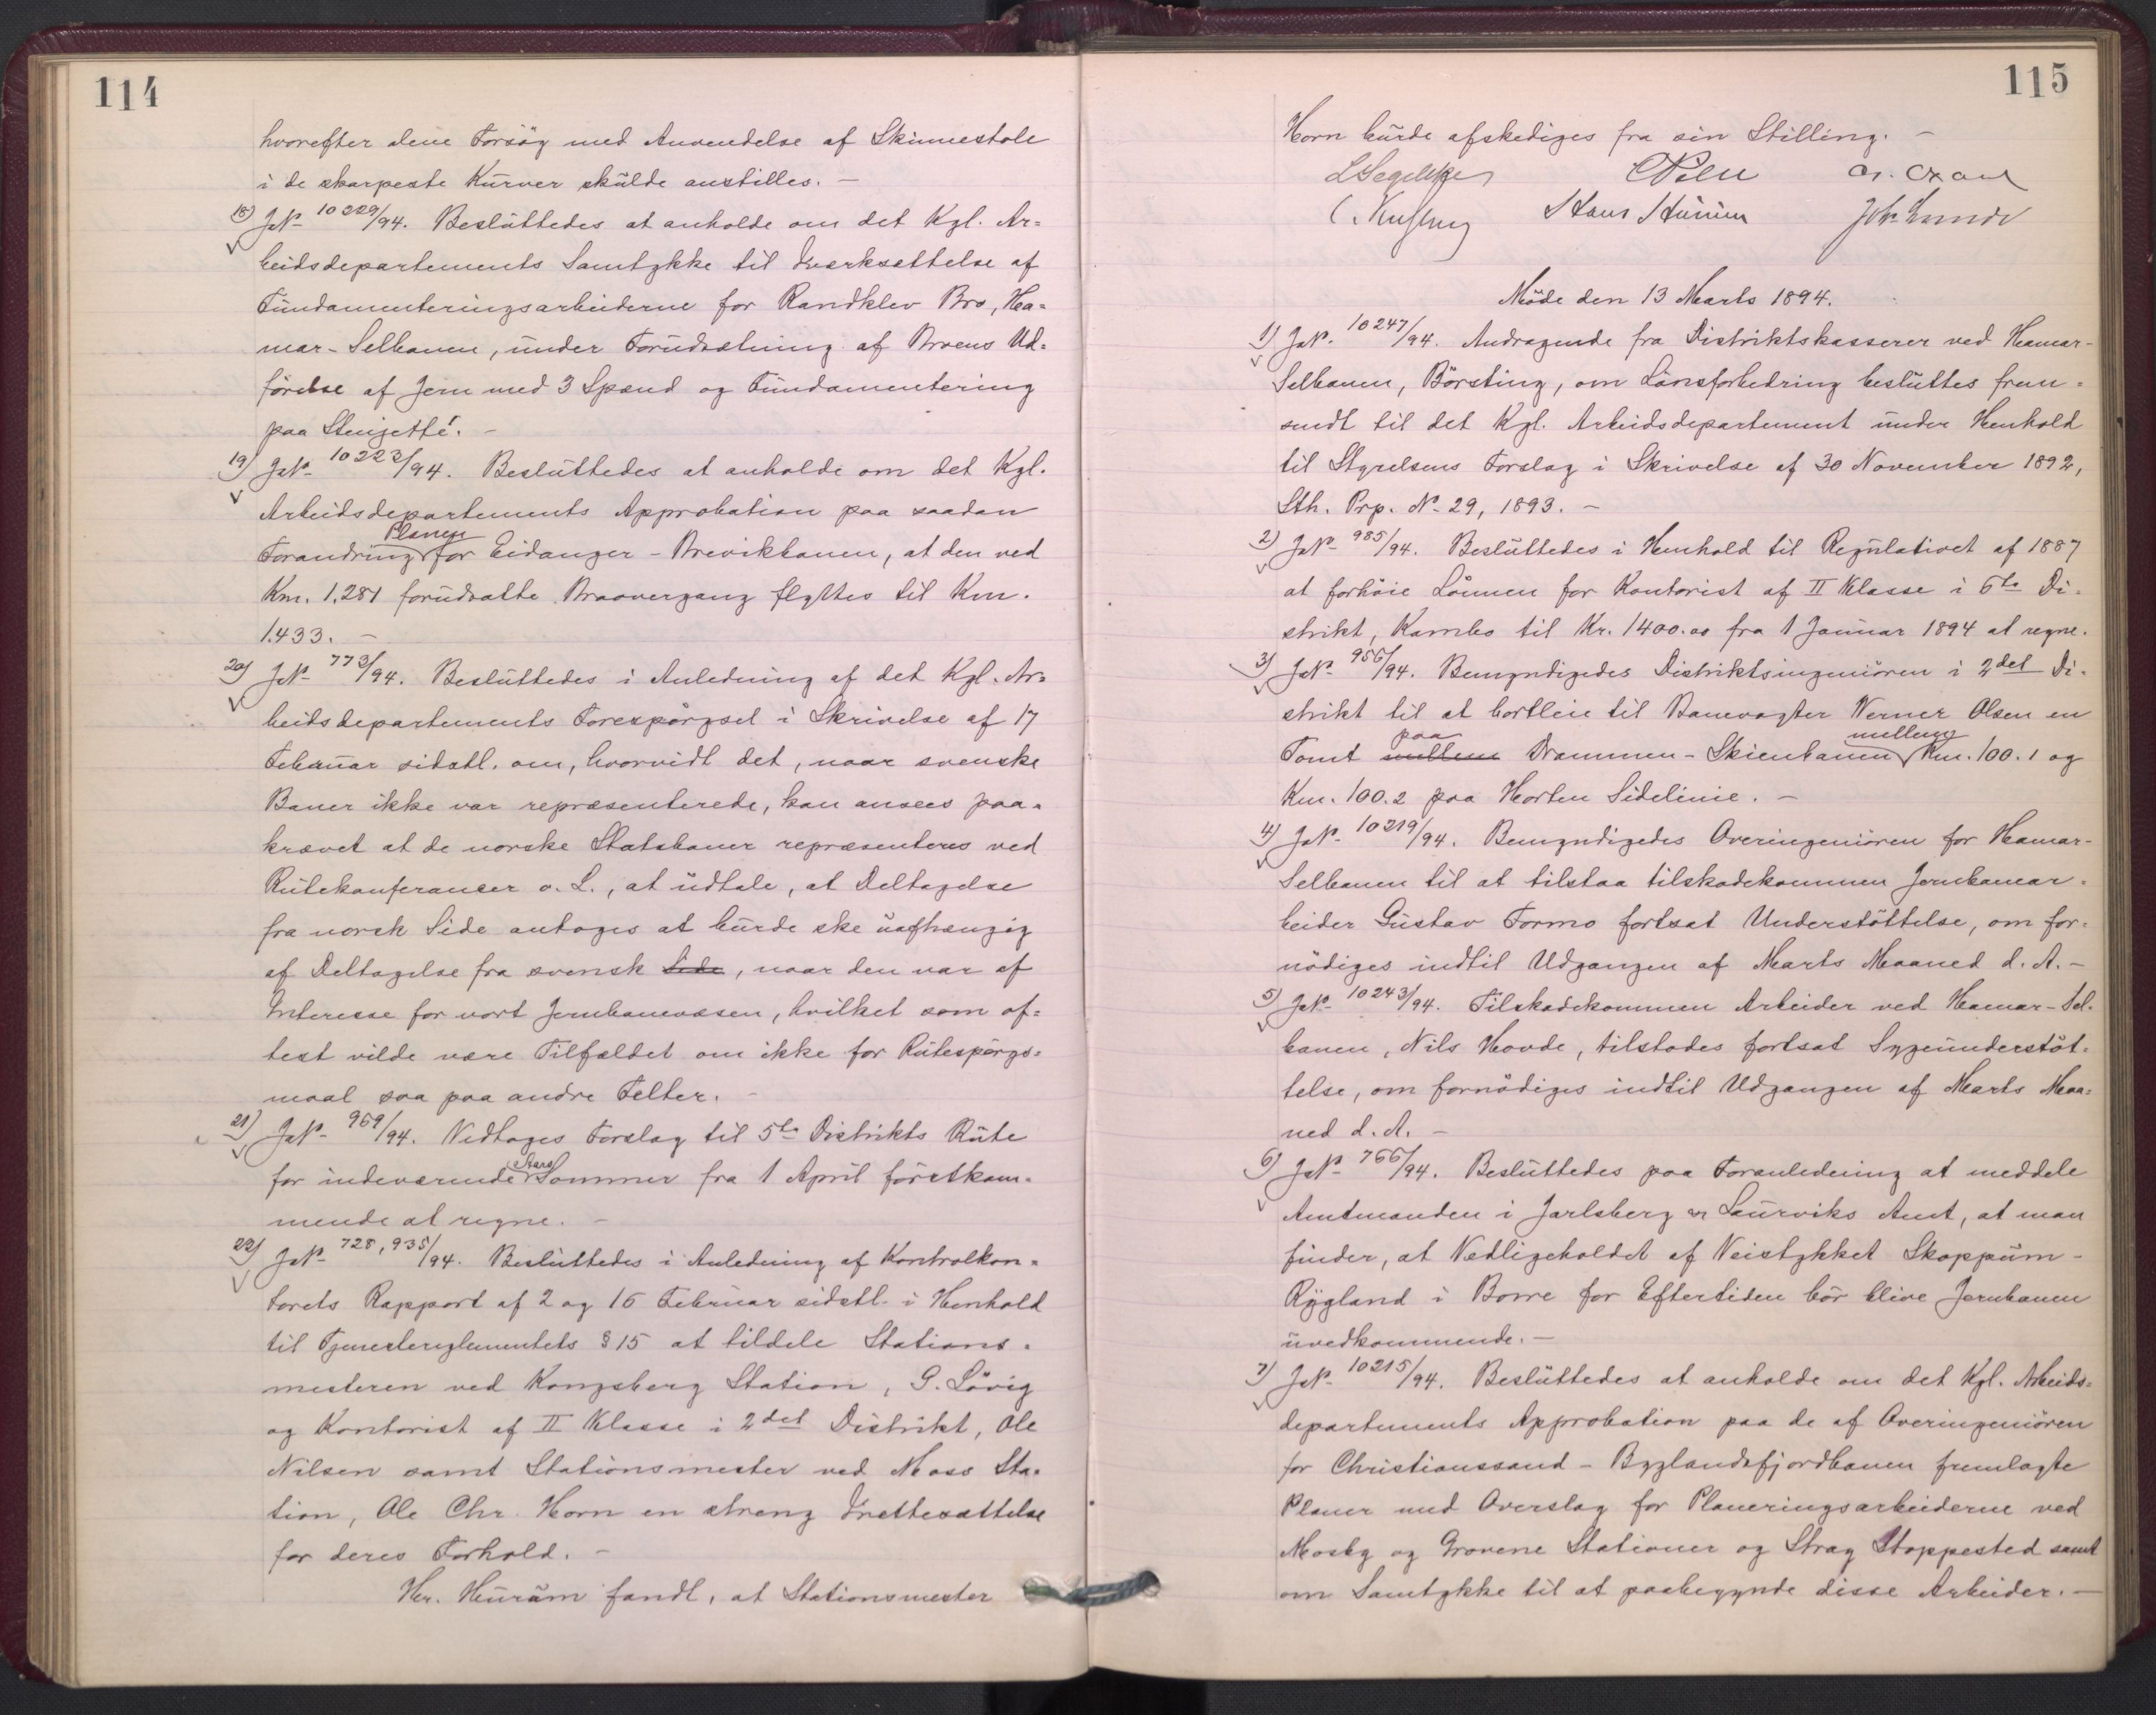 114
hvorefter dene Forsög med Anvendelse af Skinnestole
i de skarpeste Kurver skulde anstilles. —
18) JNo 10229/94. Besluttedes at anholde om det Kgl. Ar=
beidsdepartements Samtykke til Iværksættelse af
Fundamenteringsarbeiderne for Randklev Bro, Ha=
mar-Selbanen, under Forudsætning af Broens Ud=
förelse af Jern med 3 Spænd og Fundamentering
paa Stenjetté. —
19) JNo 10223/94. Besluttedes at anholde om det Kgl.
Arbeidsdepartements Approbation paa saadan
Planen
Forandring for Eidanger-Brevikbanen, at den ved
Km. 1.281 forudsatte Braovergang flyttes til Km.
1.433. —
20) JNo 773/94. Besluttedes i Anledning af det Kgl. Ar=
beidsdepartements Forespörgsel i Skrivelse af 17
Februar sidstl. om, hvorvidt det, naar svenske
Baner ikke var repræsenterede, kan ansees paa=
krævet at de norske Statsbaner repræsenteres ved
Rutekonferanser o. L., at udtale, at Deltagelse
fra norsk Side antages at burde ske uafhængig
af Deltagelse fra svensk Side, naar den var af
Interesse for vort Jernbanevæsen, hvilket som of=
test vilde være Tilfældet om ikke for Rutespörgs=
maal saa paa andre Felter. —
21) JNo 969/94. Vedtoges Forslag til 5te Distrikts Rute
Aars
for indeværende Sommer fra 1 April förstkom=
mende at regne. —
22) JNo 728, 935/94. Besluttedes i Anledning af Kontrolkon=
torets Rapport af 2 og 16 Februar sidstl. i Henhold
til Tjenestereglementets § 15 at tildele Stations=
mesteren ved Kongsberg Station, G. Lövig
og Kontorist af II Klasse i 2det Distrikt, Ole
Nilsen samt Stationsmester ved Moss Sta=
tion, Ole Chr. Horn en streng Irettesættelse
for deres Forhold. —
Hr. Huruum fandt, at Stationsmester
115
Horn burde afskediges fra sin Stilling. —
Hans Joh. Lunde
Möde den 13 Marts 1894.
1) JNo. 10247/94. Andragende fra Distriktskasserer ved Hamar-
Selbanen, Börsting, om Lönsforbedring besluttes frem=
sendt til det Kgl. Arbeidsdepartement under Henhold
til Styrelsens Forslag i Skrivelse af 30 November 1892,
Sth. Prp. No. 29, 1893. —
2) JNo 985/94. Besluttedes i Henhold til Regulativet af 1887
at forhöie Lönnen for Kontorist af II Klasse i 6te Di=
strikt, Kambo til Kr. 1400.00 fra 1 Januar 1894 at regne.
3) JNo 956/94. Bemyndigedes Distriktsingeniören i 2det Di=
strikt til at bortleie til Banevogter Werner Olsen en
paa mellem
Tomt mellem Drammen-Skienbanen Km. 100.1 og
Km. 100.2 paa Horten Sidelinie. —
4) JNo 10219/94. Bemyndigedes Overingeniören for Hamar-
Selbanen til at tilstaa tilskadekommen Jernbanear=
beider Gustav Formo fortsat Understöttelse, om for=
nödiges indtil Udgangen af Marts Maaned d. A. —
5) JNo 10243/94. Tilskadekommen Arbeider ved Hamar-Sel-
banen, Nils Hovde, tilstodes fortsat Sygeunderstöt=
telse, om fornödiges indtil Udgangen af Marts Maa=
ned d. A. —
6) JNo 766/94. Besluttedes paa Foranledning at meddele
Amtmanden i Jarlsberg og Laurviks Amt, at man
finder, at Vedligeholdet af Veistykket Skoppum-
Rygland i Borre for Eftertiden bör blive Jernbanen
uvedkommende. —
7) JNo 10215/94. Besluttedes at anholde om det Kgl. Arbeids=
departements Approbation paa de af Overingeniören
for Christianssand-Byglandsfjordbanen fremlagte
Planer med Overslag for Planeringsarbeiderne ved
Mosby og Grovene Stationer og Stray Stoppested samt
om Samtykke til at paabegynde disse Arbeider. —